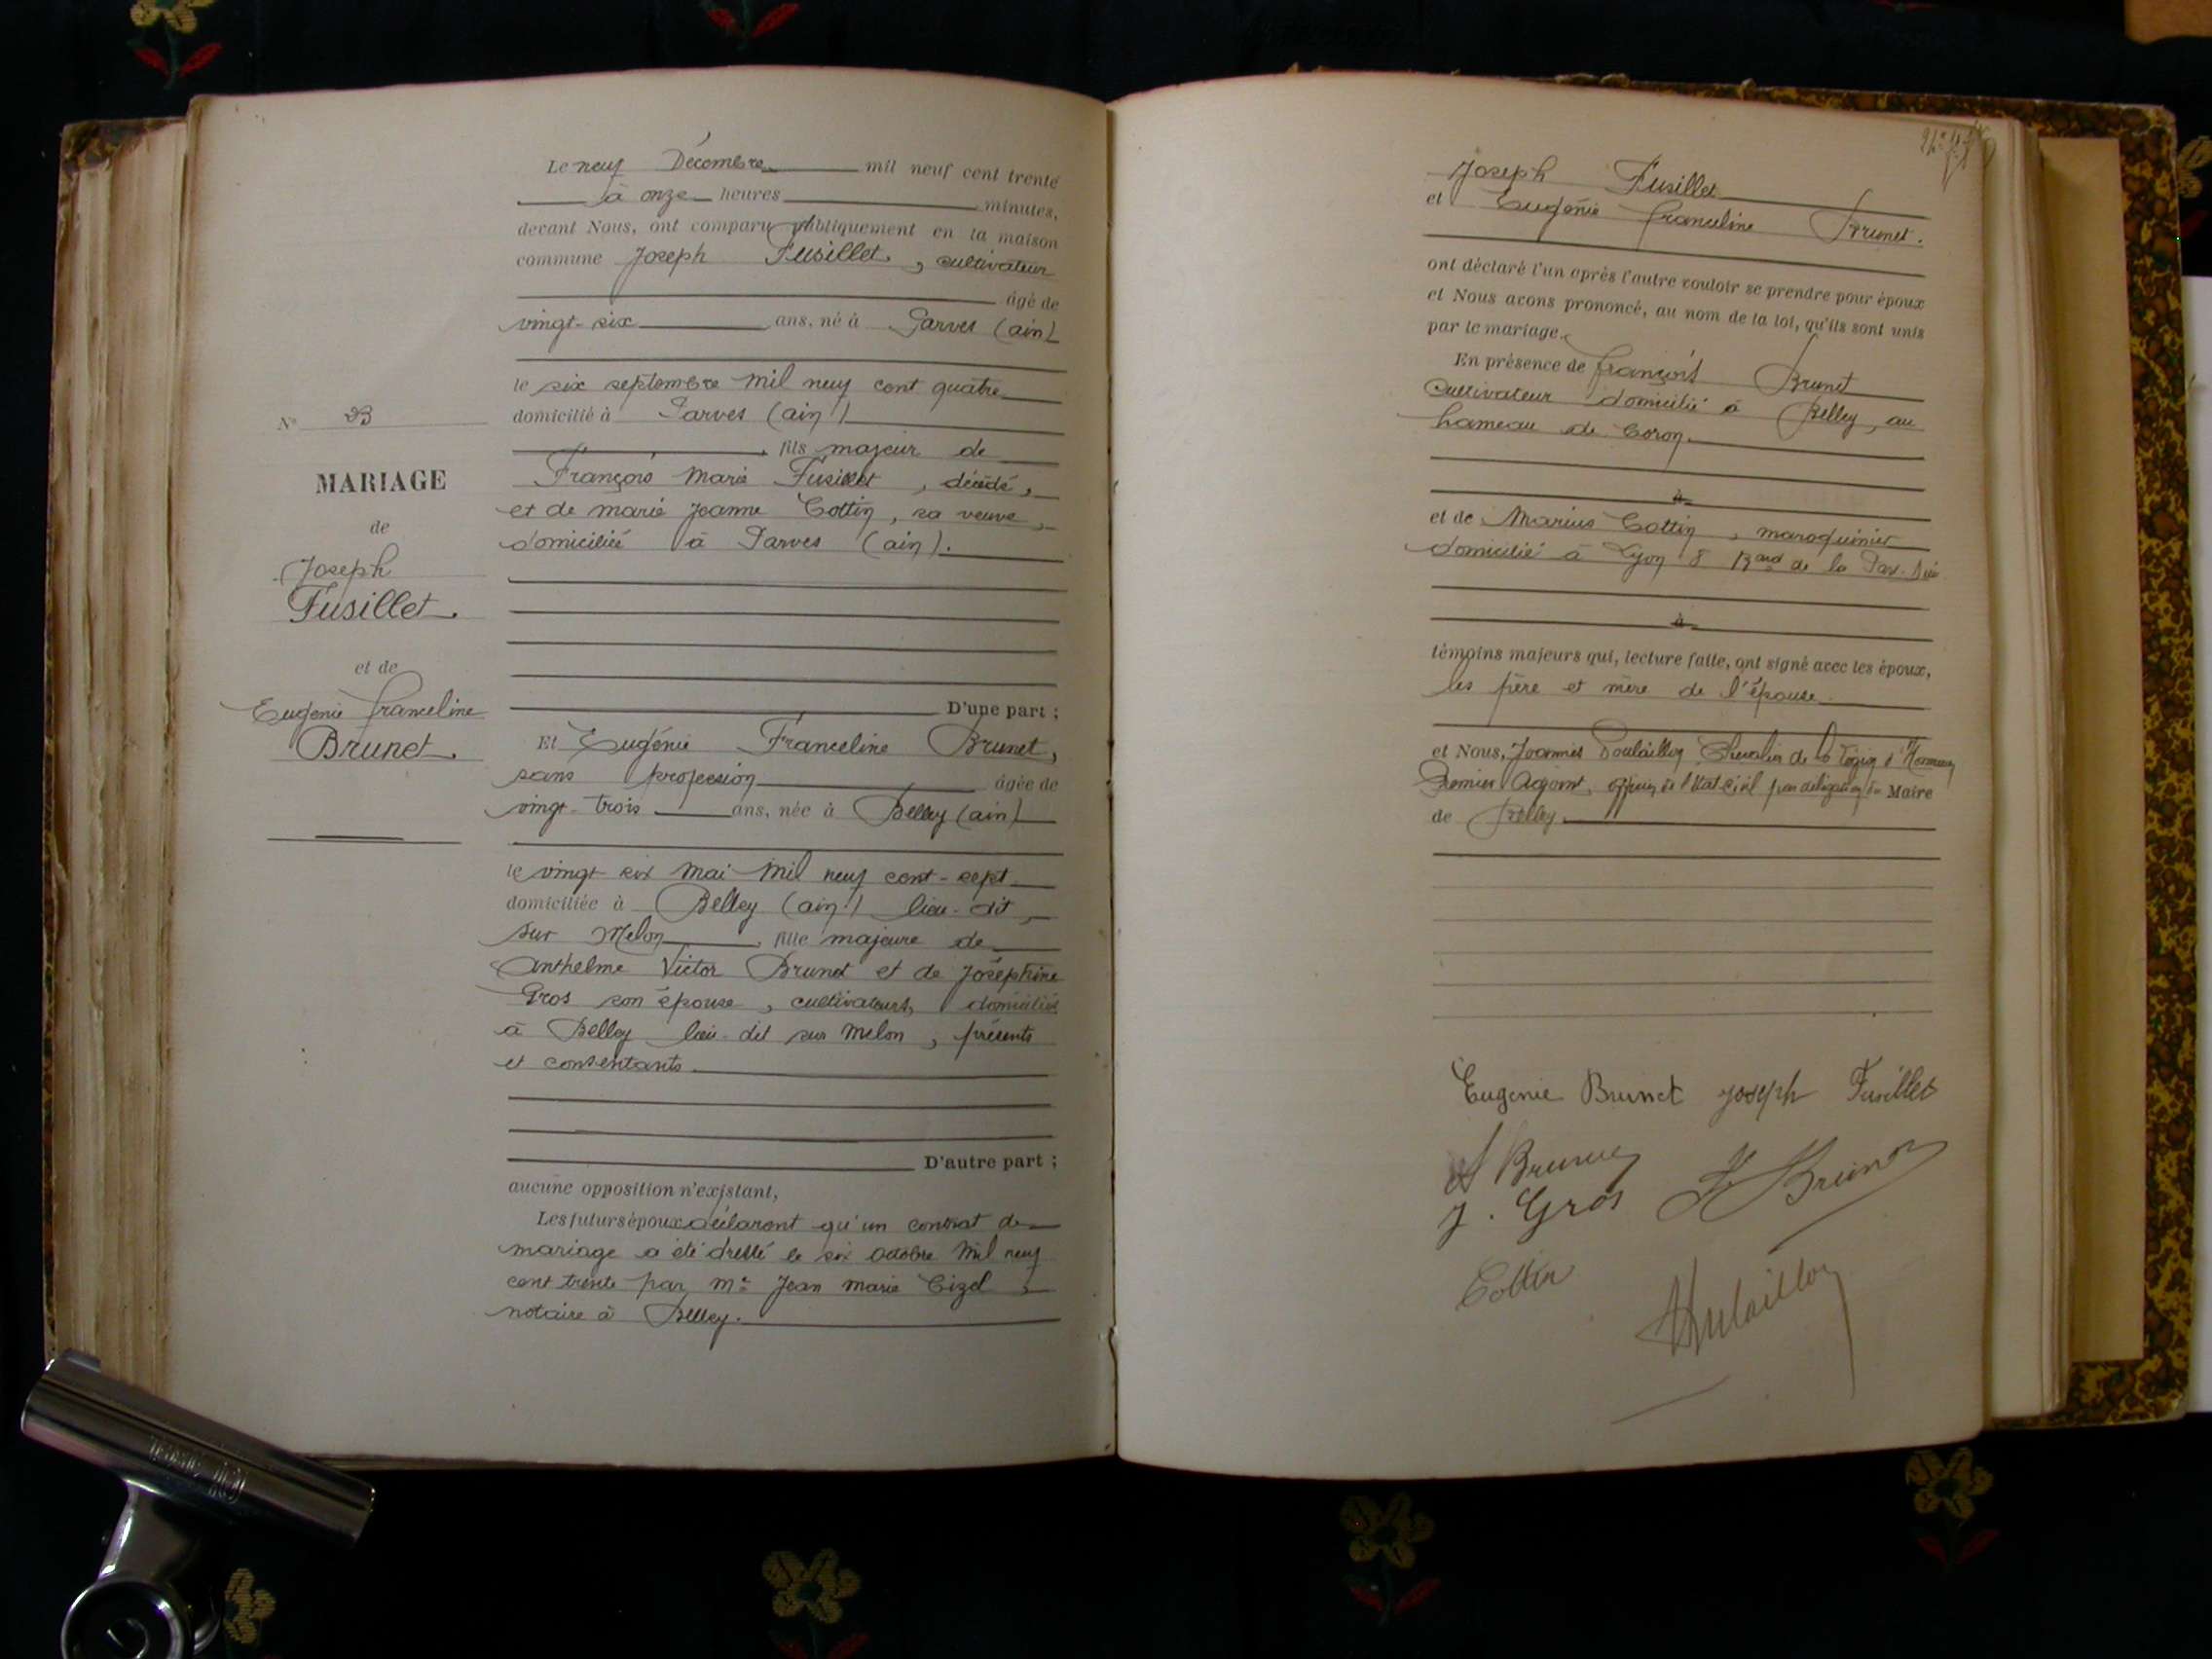 N° 33
MARIAGE
de
Joseph
Fusillet.
et de
Eugenie Franceline
Brunet.
Le neuf Décembre mil neuf cent trente
à onze heures minutes,
devant Nous, ont comparu publiquement en la maison
commune Joseph Fusillet, cultivateur
âgé de
vingt-six ans, né à Parves (ain)
le six septembre mil neuf cent quatre
domicilié à Parves (ain)
fils majeur de
François Marie Fusillet, décédé,
et de marie Jeanne Cottin, sa veuve,
domiciliée à Parves (ain).
D'une part ;
Et Eugénie Franceline Brunet,
sans profession âgée de
vingt-trois ans, née à Belley (ain)
le vingt six mai mil neuf cent-sept
domiciliée à Belley (ain) lieu-dit
sur Melon, fille majeure de
Anthelme Victor Brunet et de Joséphine
Gros son épouse, cultivateurs, domiciliés
à Belley lieu-dit sur Melon, présents
et consentants.
D'autre part ;
aucune opposition n'existant,
Les futurs époux déclarent qu'un contrat de
mariage a été dressé le six octobre mil neuf
cent trente par Me Jean Marie Cizel,
notaire à Belley.
Joseph Fusillet
et Eugénie Franceline Brunet.
ont déclaré l'un après l'autre vouloir se prendre pour époux
et Nous avons prononcé, au nom de la loi, qu'ils sont unis
par le mariage.
En présence de François Brunet
cultivateur domicilié à Belley, au
hameau de Coron.
à
et de Marius Cottin, maroquinier
domicilié à Lyon 8 Bard de la Part-Dieu
à
témoins majeurs qui, lecture faite, ont signé avec les époux,
les père et mère de l'épouse
et Nous, Joannès Poulaillon Chevalier de la Légion d'Honneur
Premier Adjoint, officier de l'Etat-civil par délégation du Maire
de Belley.
Eugenie Brunet Joseph Fusillet
A Brunet
J. Gros F Brunet
Cottin